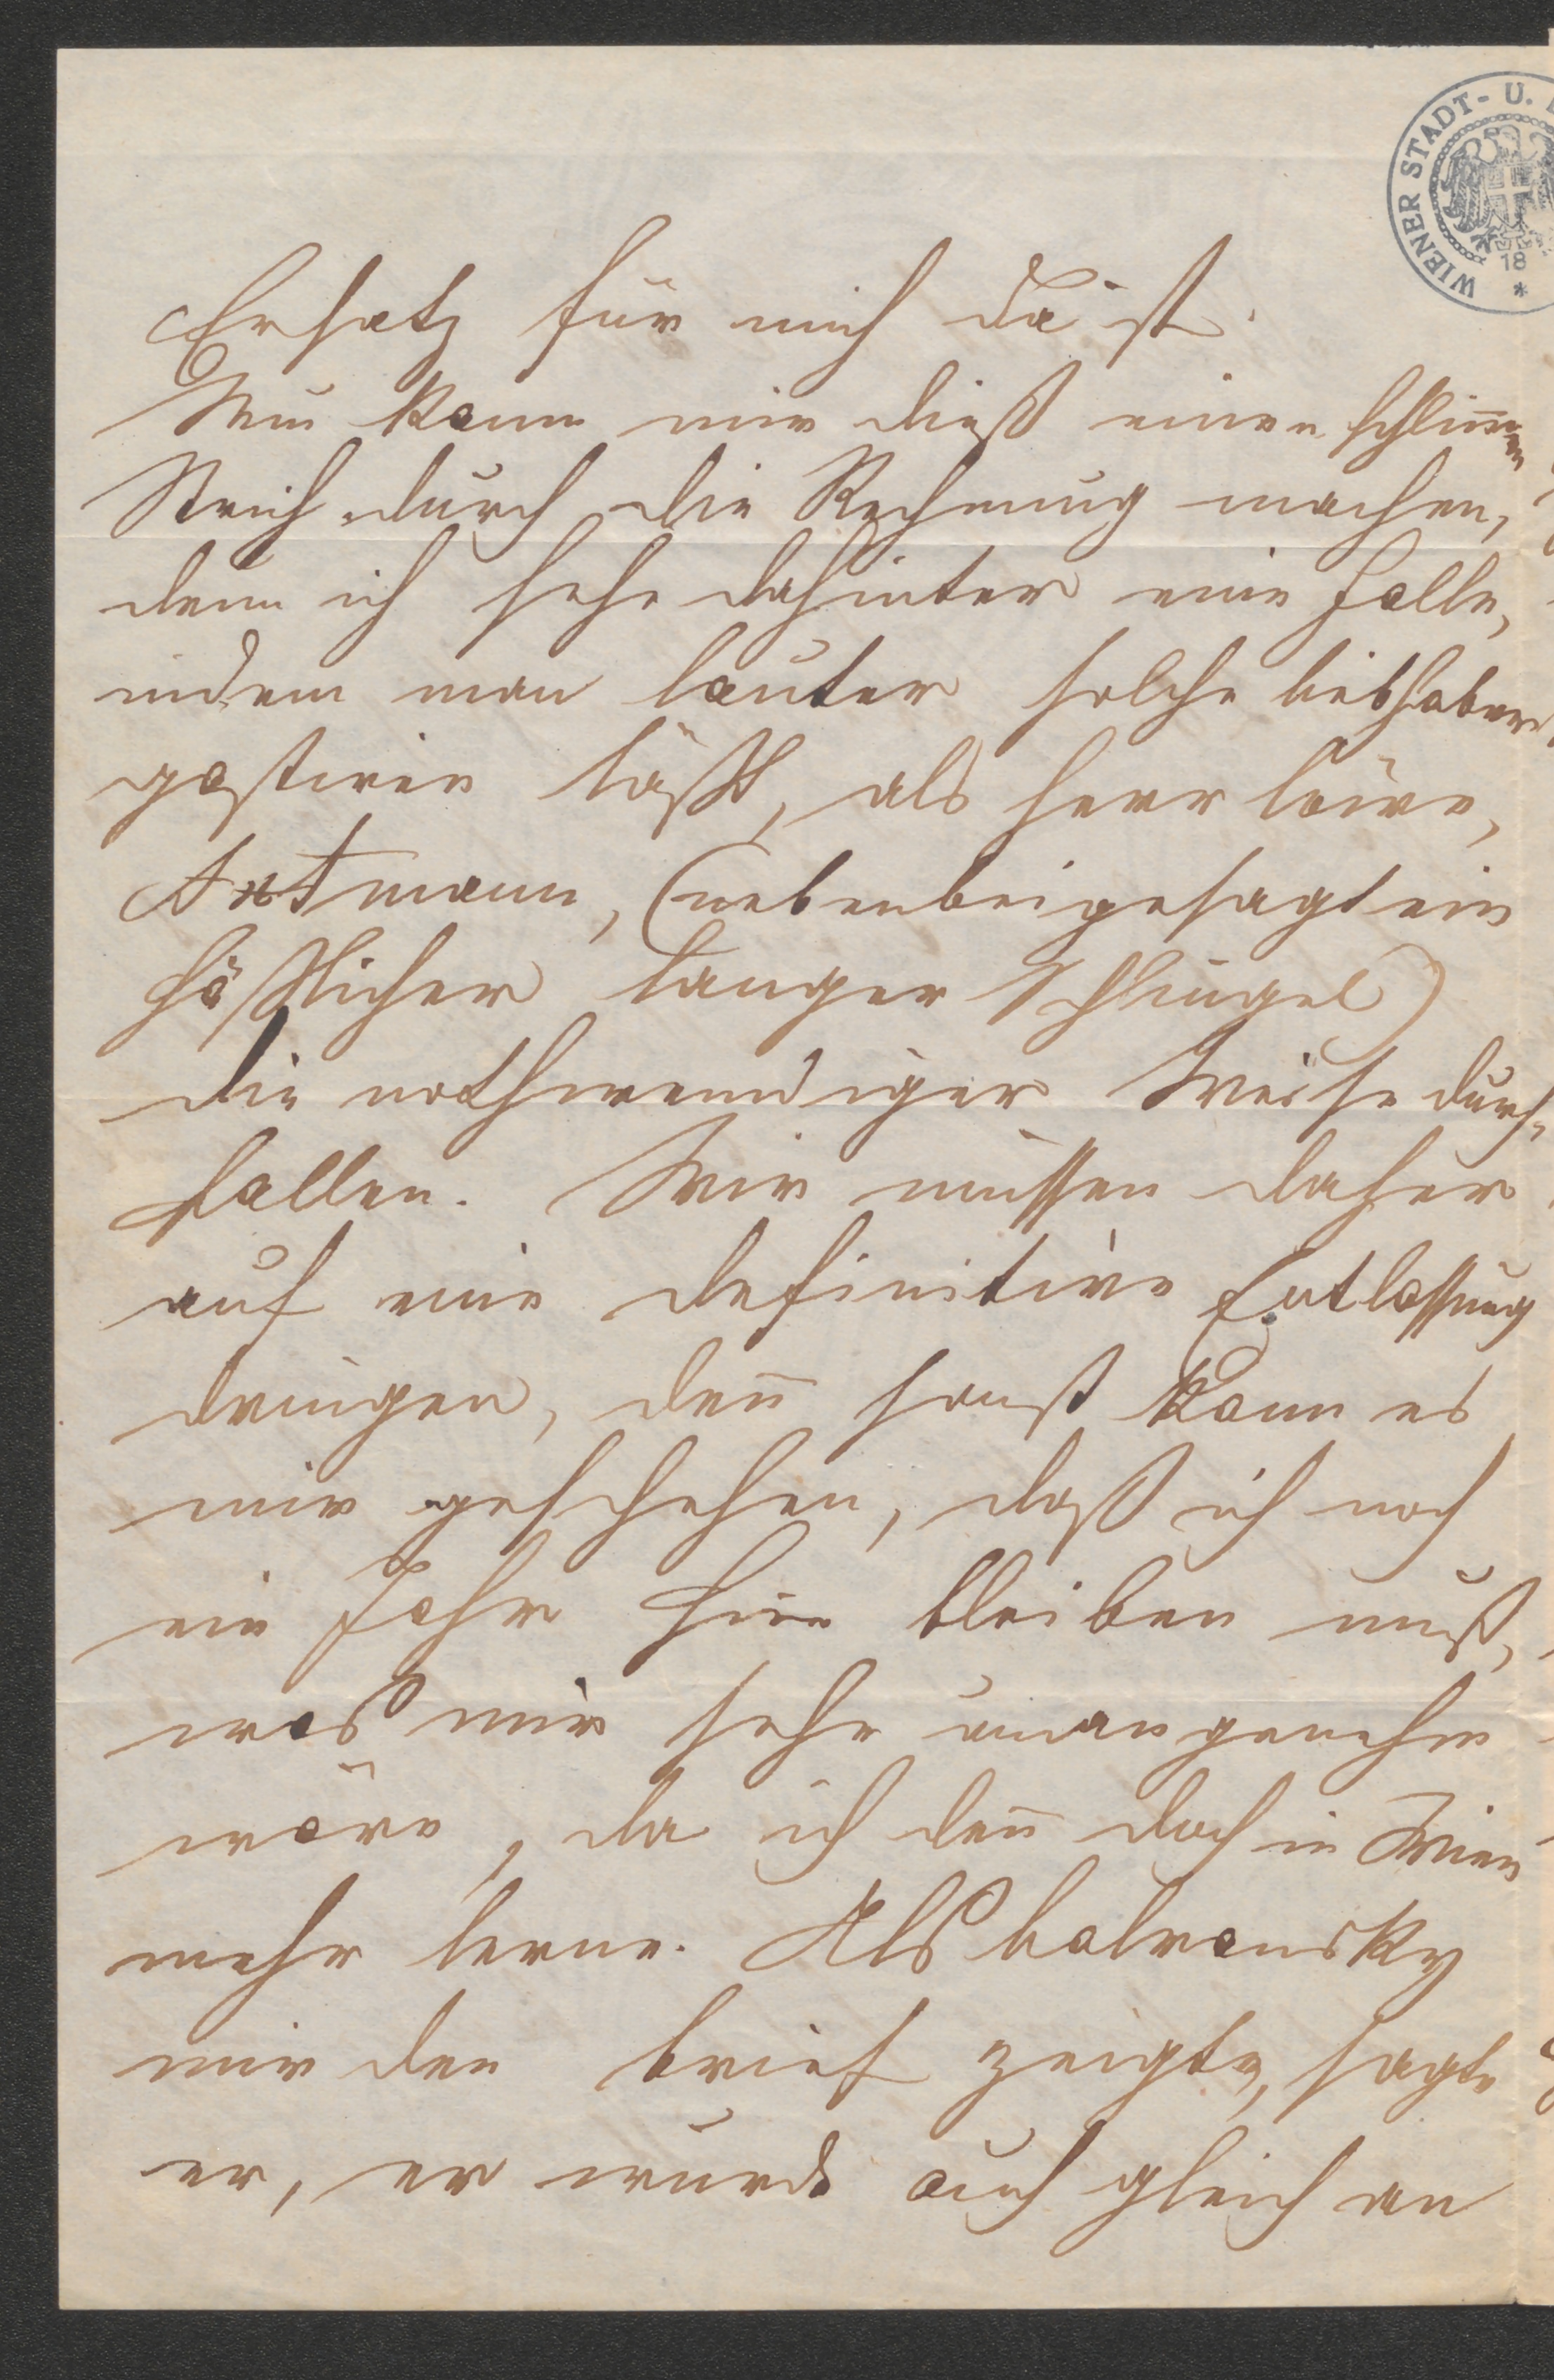 WIENER STADT- U.
18
Ersatz für mich da ist.
Nun kann mir dieß einen schlim̄en
Strich durch die Rechnung machen,
denn ich sehe dahinter eine Falle,
indem man lauter solche Liebhaber
gastiren läßt, als Herr Löwe,
Artmann, (nebenbei gesagt ein
häßlicher langer Schlingel)
die nothwendiger Weise durch-
fallen. Wir müssen daher
auf eine definitive Entlassung
dringen, den̄ sonst kann es
mir geschehen, daß ich noch
ein Jahr hier bleiben muß,
was mir sehr unangenehm
wäre, da ich den̄ doch in Wien
mehr lerne. Als
mir den Brief zeigte, sagte
er, er wurde auch gleich an